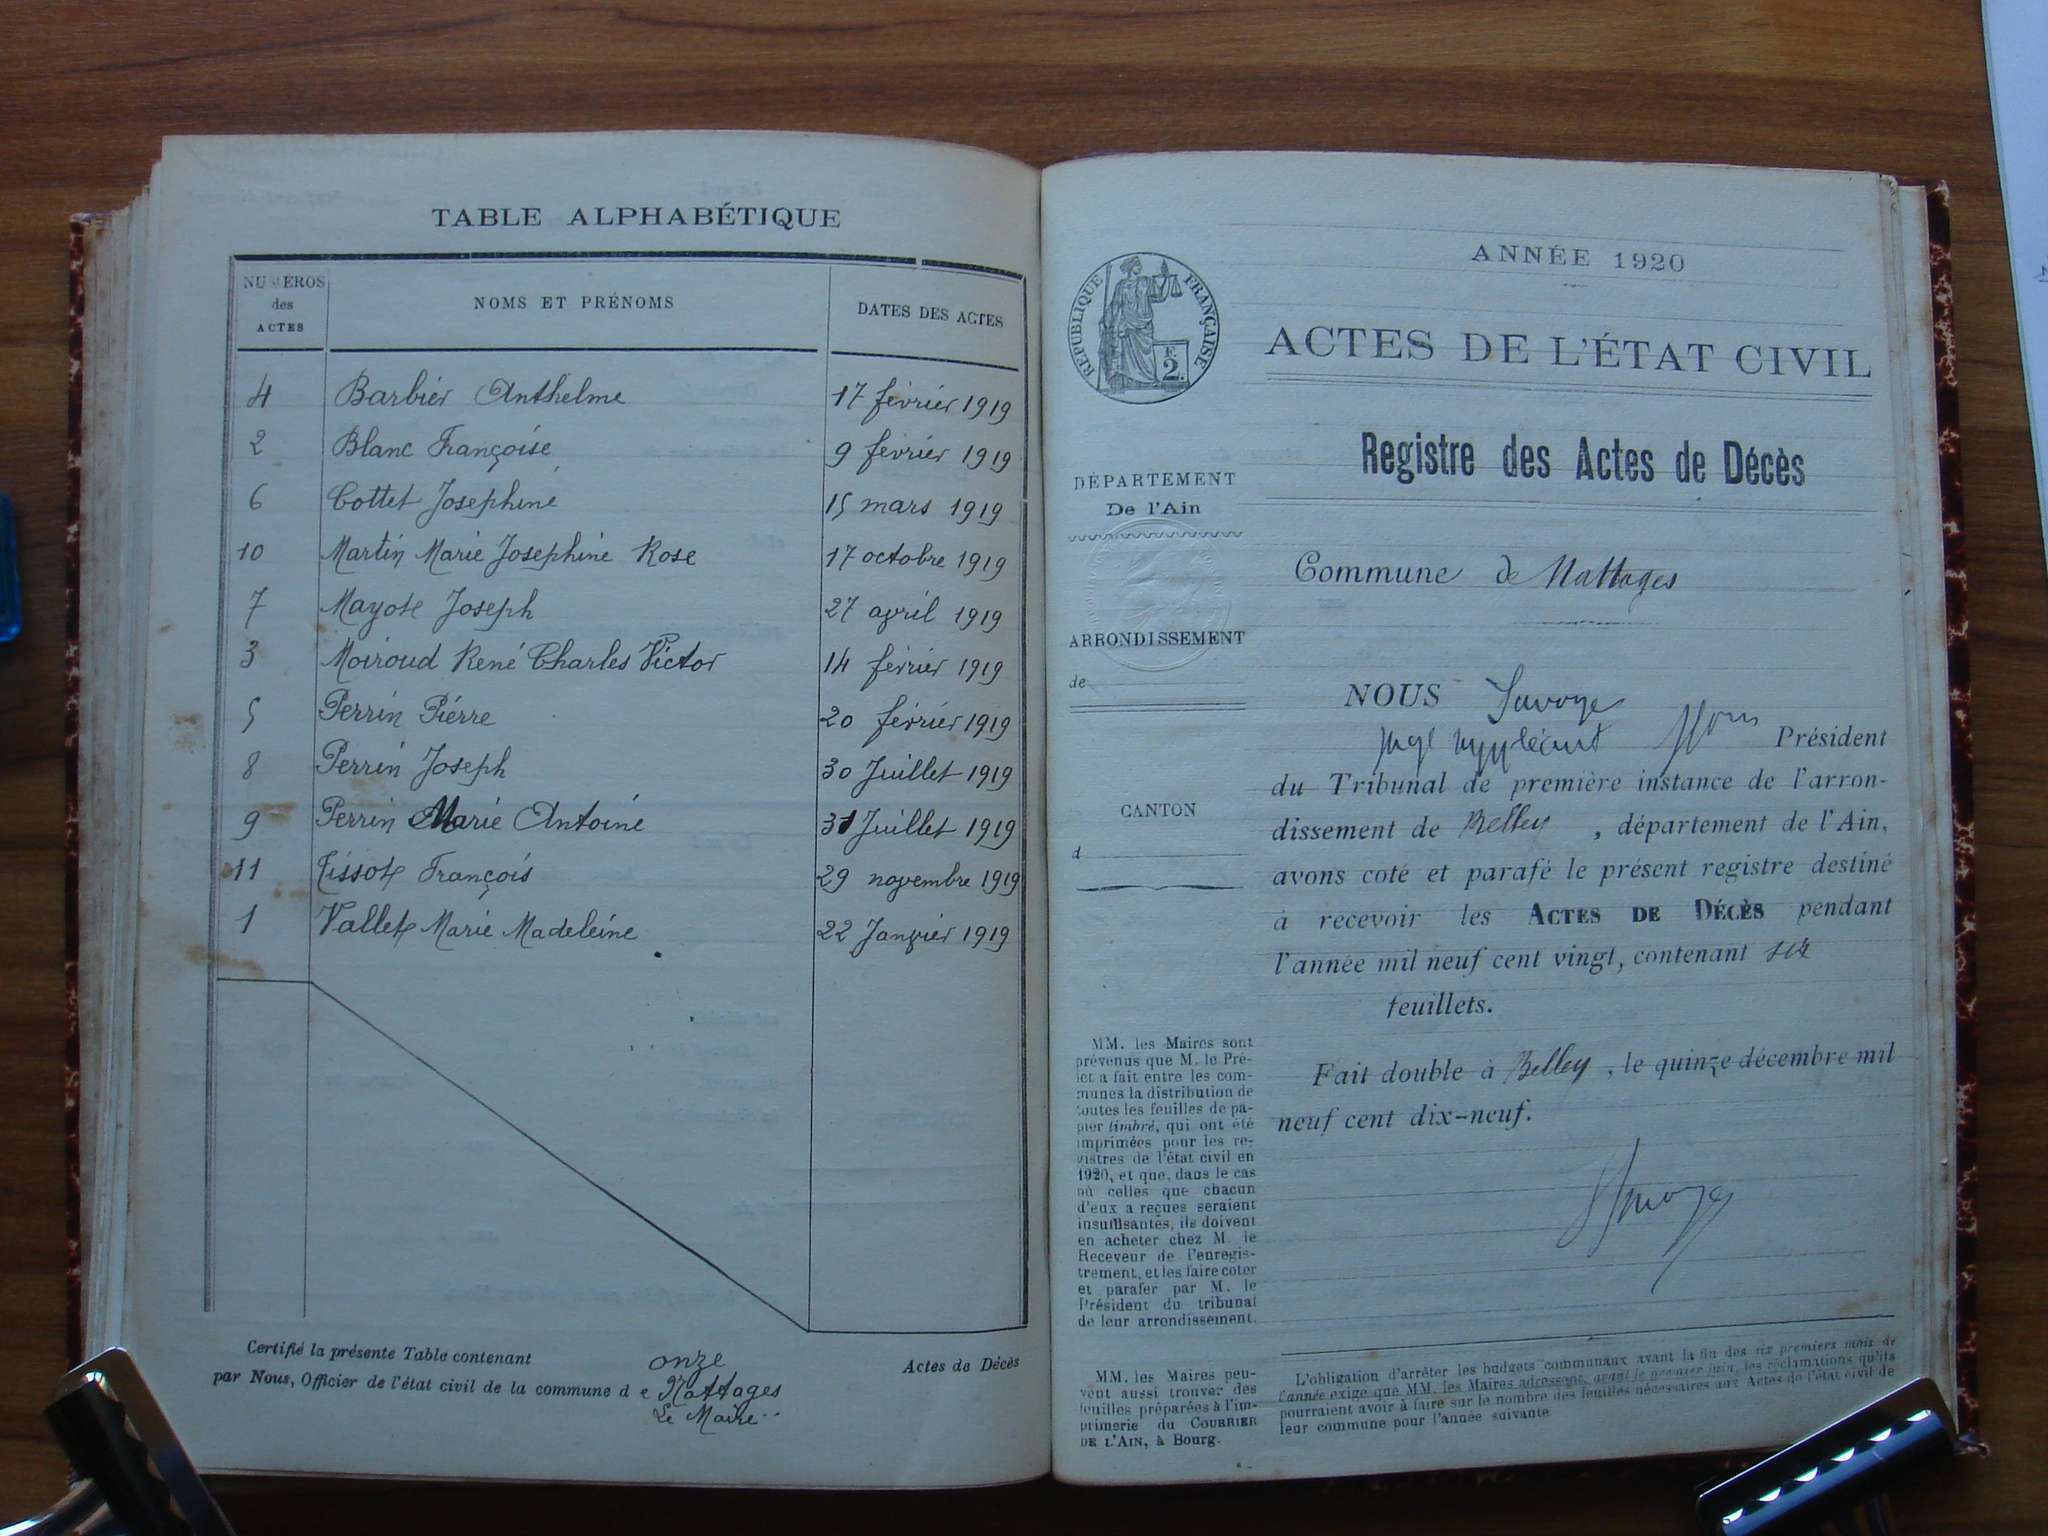 TABLE ALPHABÉTIQUE
NUMÉROS des ACTES
NOMS ET PRÉNOMS
DATES DES ACTES
4 Barbier Anthelme 17 février 1919
2 Blanc Françoise 9 février 1919
6 Cottet Josephine 15 mars 1919
10 Martin Marie Josephine Rose 17 octobre 1919
7 Mayot Joseph 27 avril 1919
3 Moiroud René Charles Victor 14 février 1919
5 Perrin Pierre 20 février 1919
8 Perrin Joseph 30 Juillet 1919
9 Perrin Marie Antoine 31 Juillet 1919
11 Tissot François 29 novembre 1919
1 Vallet Marie Madeleine 22 Janvier 1919
Certifié la présente Table contenant onze Actes de Décès
par Nous, Officier de l'état civil de la commune de Nattages
Le Maire
ANNÉE 1920
RÉPUBLIQUE FRANÇAISE
F.
2.
ACTES DE L'ÉTAT CIVIL
Registre des Actes de Décès
DÉPARTEMENT
De l'Ain
Commune de Nattages
ARRONDISSEMENT
de
CANTON
d
NOUS Savoye
juge suppléant Président
du Tribunal de première instance de l'arron-
dissement de Belley, département de l'Ain,
avons coté et parafé le présent registre destiné
à recevoir les ACTES DE DÉCÈS pendant
l'année mil neuf cent vingt, contenant six
feuillets.
Fait double à Belley, le quinze décembre mil
neuf cent dix-neuf.
Savoye
MM. les Maires sont
prévenus que M. le Pré-
fet a fait entre les com-
munes la distribution de
toutes les feuilles de pa-
pier timbré, qui ont été
imprimées pour les re-
gistres de l'état civil en
1920, et que, dans le cas
où celles que chacun
d'eux a reçues seraient
insuffisantes, ils doivent
en acheter chez M. le
Receveur de l'enregis-
trement, et les faire coter
et parafer par M. le
Président du tribunal
de leur arrondissement.
MM. les Maires peu-
vent aussi trouver des
feuilles préparées à l'im-
primerie du COURRIER
DE L'AIN, à Bourg.
L'obligation d'arrêter les budgets communaux avant la fin des six premiers mois de
l'année exige que MM. les Maires adressent, avant le premier juin, les réclamations qu'ils
pourraient avoir à faire sur le nombre des feuilles nécessaires aux Actes de l'état civil de
leur commune pour l'année suivante